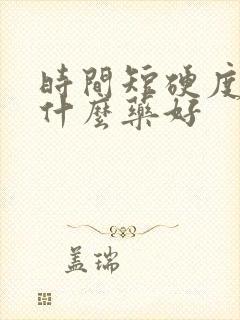 時間短硬度
什麼藥好
盖瑞